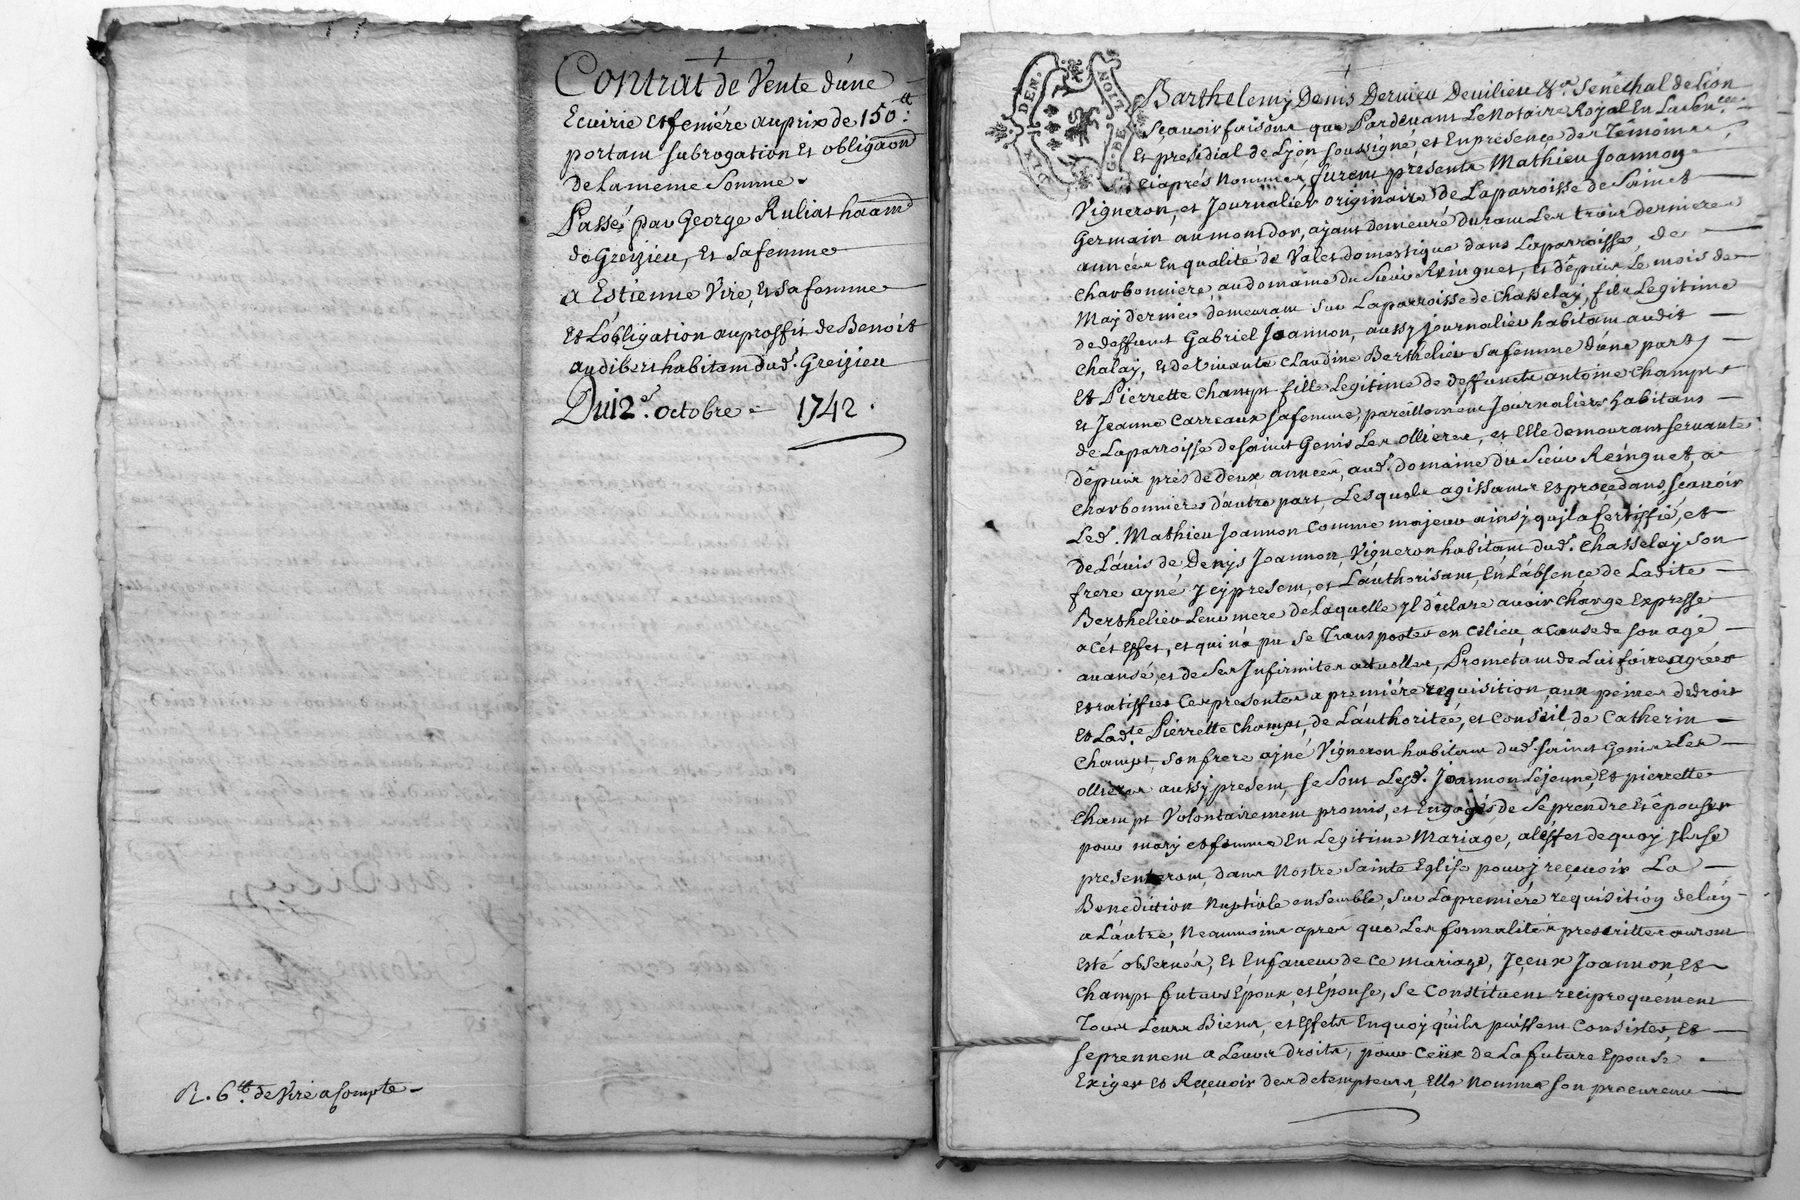 Contrat de Vente d'une
Ecuirie et feniére au prix de 150.tt
portant subrogation Et obliga̅o̅n̅
de la meme Somme.
Passé par George Ruliat ha̅a̅n̅t̅
de Greizieu, Et sa femme
a Estienne Viré, Et sa femme
Et L'obligation au proffit de Benoit
audibert habitant dud. Greizieu
Du 12e. octobre = 1742.
R. 6tt. de Viré a Compte
GEN. DE LION
Barthelemy Denis Dervieu Devilieu Senéchal de Lion
Sçavoir faisons que Pardevant Le Notaire Royal En La
Et presidial de Lyon soussigné, et En présence des Témoins
ciaprés Nommés, furent présents Mathieu Joannon
Vigneron, et Journalier originaire de La parroisse de Sainct
Germain au mont dor, ayant demeuré durant Les trois dernieres
années En qualité de Valet domestique dans La parroisse de
Charbonniere au domaine du Sieur Reinguet, et dépuis Le mois de
May dernier demeurant sur La parroisse de Chasselay, fils Legitime
de deffunt Gabriel Joannon, aussy journalier habitant audit
Chalay, Et de Vivante Claudine Berthelier sa femme d'une part,
Et Pierrette Champt fille Legitime de deffuncts antoine Champt
Et Jeanne Carreaux sa femme, pareillement Journaliers habitans
de La parroisse de Sainct Genis Les ollieres, et Elle demeurant servante
dépuis prés de deux années, aud. domaine du Sieur Reinguet, a
Charbonnieres d'autre part, Lesquels agissants et procedans, sçavoir
Led. Mathieu Joannon Comme majeur ainsy quil a Certiffié, et
de L'avis de Denys Joannon, Vigneron habitant dud. Chasselay son
frere ayné Icy present, et L'authorisant, En L'absençe de Ladite
Berthelier Leur mere de Laquelle yl déclare avoir charge Expresse
a Cét Effet, et qui na pu se Transporter en ce Lieu, a Cause de son agé
avansé, et de ses Infirmites actuelles, Prometant de Lui faire agréer
Et ratiffier Ces presentes a premiére requisition aux peines de droit
Et Lad.te Pierrette Champt, de L'authoritéé, et Conseil de Catherin
Champt, son frere ayné Vigneron habitant dud. Sainct Genis Les
ollieres aussy present, se Sont Lesd. Joannon Lejeune, Et pierrette
Champt Volontairement promis, et Engagés de Se prendre Et épouser
pour mary et femme En Legitime Mariage, a L'éffet de quoy yls se
presenteront, dans Nostre Sainte Eglise pour y reçevoir La
Benediction Nuptiale ensemble, Sur La premiére requisition de L'un
a L'autre, Neanmoins aprés que Les formalités prescrittes auront
esté observés, Et En faveur de Ce mariage, Içeux Joannon, Et
Champt futurs Epoux, et Epouse, se Constituent reciproquement
Tous Leurs Biens, et Effets En quoy quils puissent Consister, Et
se prennent a Leurs droits, pour Ceux de La future Epouse
Exiger Et Reçevoir des detempteurs, Elle Nomme son procureur